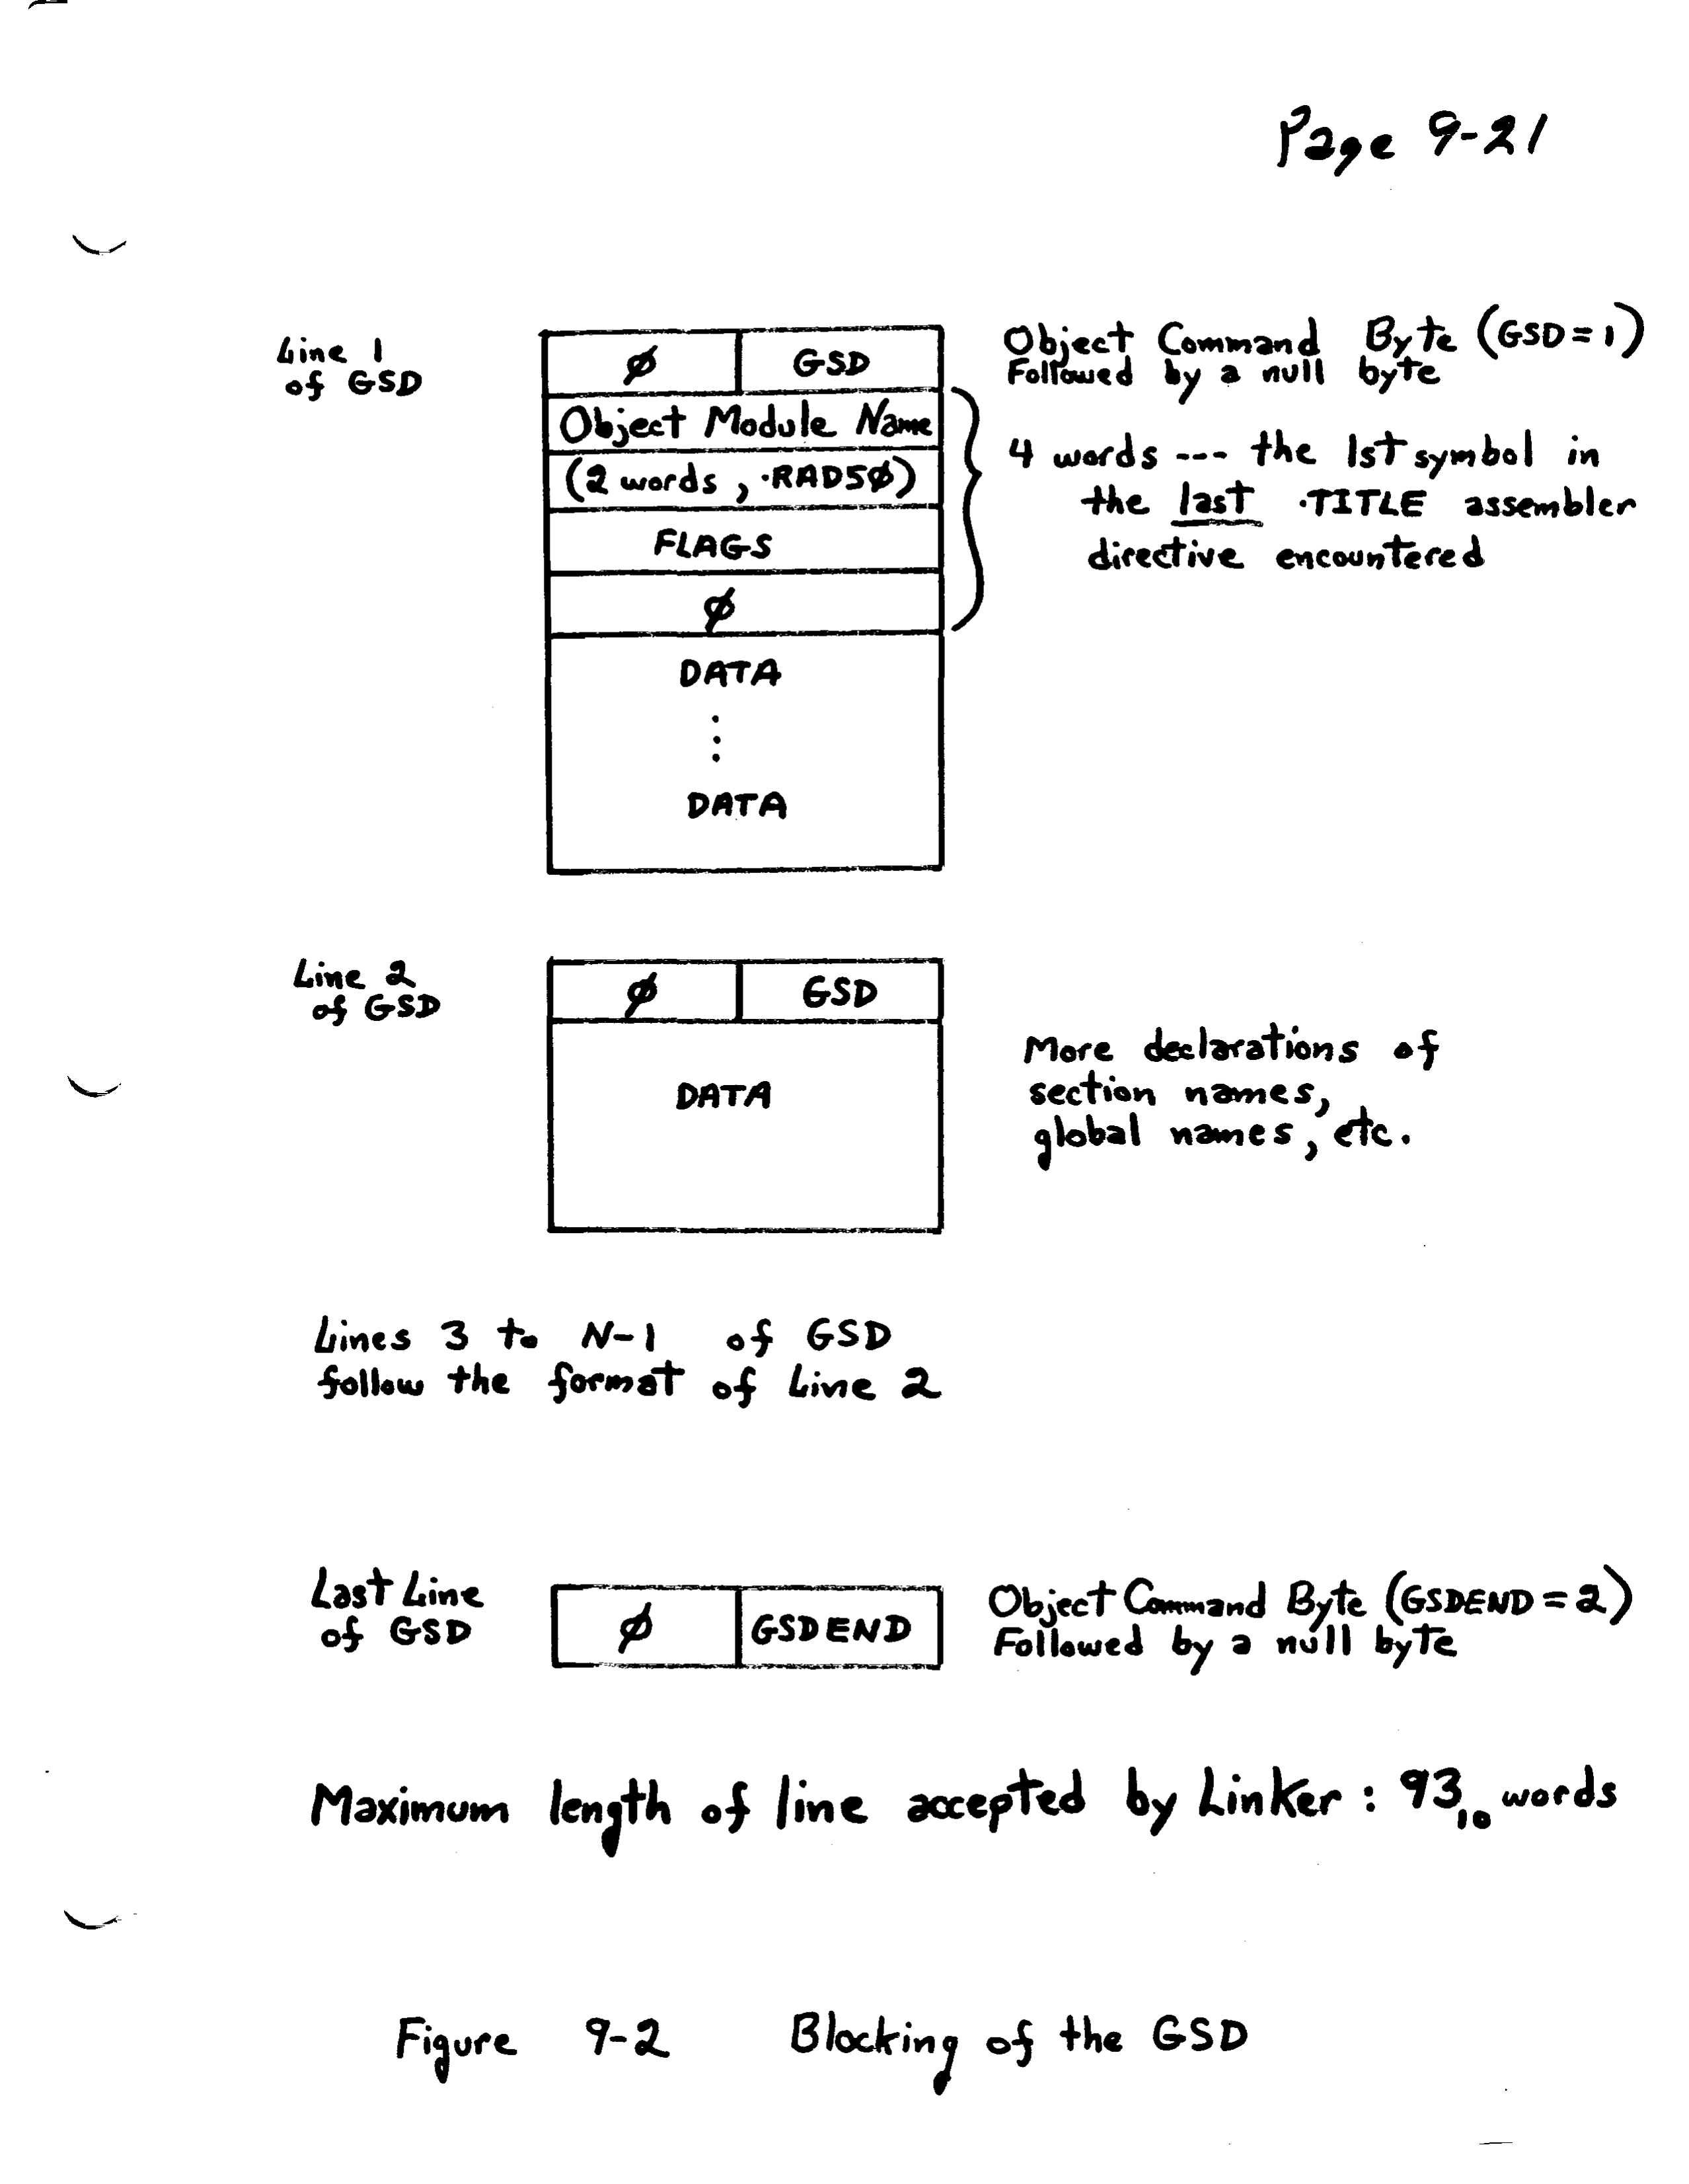 Page 9-21
Line 1
of GSD
ø GSD
Object Module Name
(2 words, .RAD5ø)
FLAGS
ø
DATA
DATA
Object Command Byte (GSD=1)
Followed by a null byte
4 words --- the 1st symbol in
the last .TITLE assembler
directive encountered
Line 2
of GSD
ø GSD
DATA
More declarations of
section names,
global names, etc.
Lines 3 to N-1 of GSD
follow the format of Line 2
Last Line
of GSD
ø GSDEND
Object Command Byte (GSDEND=2)
Followed by a null byte
Maximum length of line accepted by Linker : 93₁₀ words
Figure 9-2 Blocking of the GSD